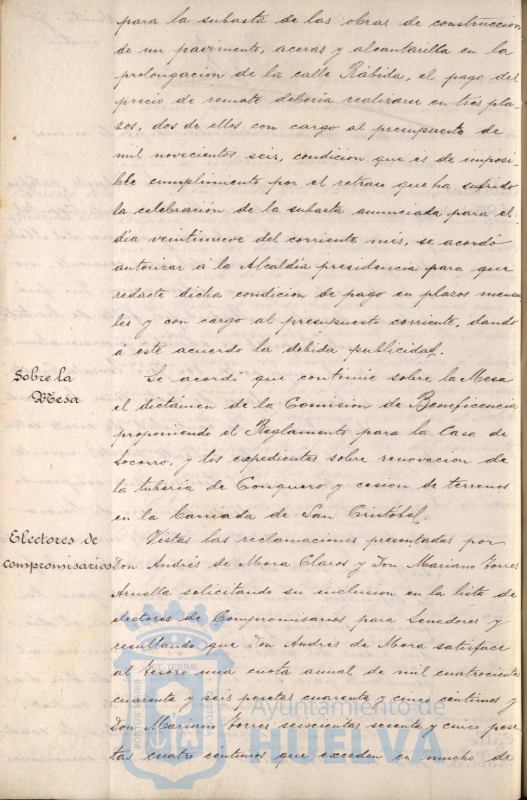 para la subasta de las obras de construccion
de un pavimento, aceras y alcantarilla en la
prolongacion de la calle Rábida, el pago del
precio de remate deberia realizarse en tres pla-
zos, dos de ellos con cargo al presupuesto de
mil novecientos seis, condicion que es de imposi-
ble cumplimiento por el retraso que ha sufrido
la celebración de la subasta anunciada para el
dia veintinueve del corriente mes, se acordó
autorizar á la Alcaldia presidencia para que
redacte dicha condicion de pago en plazos mensua-
les y con cargo al presupuesto corriente, dando
a este acuerdo la debida publicidad.
Sobre la Mesa
Se acordo que continúe sobre la Mesa
el dictámen de la Comision de Beneficencia
proponiendo el Reglamento para la Casa de
Socorro, y los expedientes sobre renovacion de
la tuberia de Conquero y cesion de terrenos
en la barriada de San Cristóbal.
Electores de
compromisarios
Vistas las reclamaciones presentadas por
Don Andrés de Mora Claros y Don Mariano Torres
solicitando su inclusion en la lista de
electores de Compromisarios para Senadores y
resultando que Don Andrés de Mora satisface
al Tesoro una cuota anual de mil cuatrocientas
cuarenta y seis pesetas cuarenta y cinco céntimos y
Don Mariano Torres seiscientas sesenta y cinco pese-
tas cuatro céntimos que exceden en mucho de
Ayuntamiento de
HUELVA